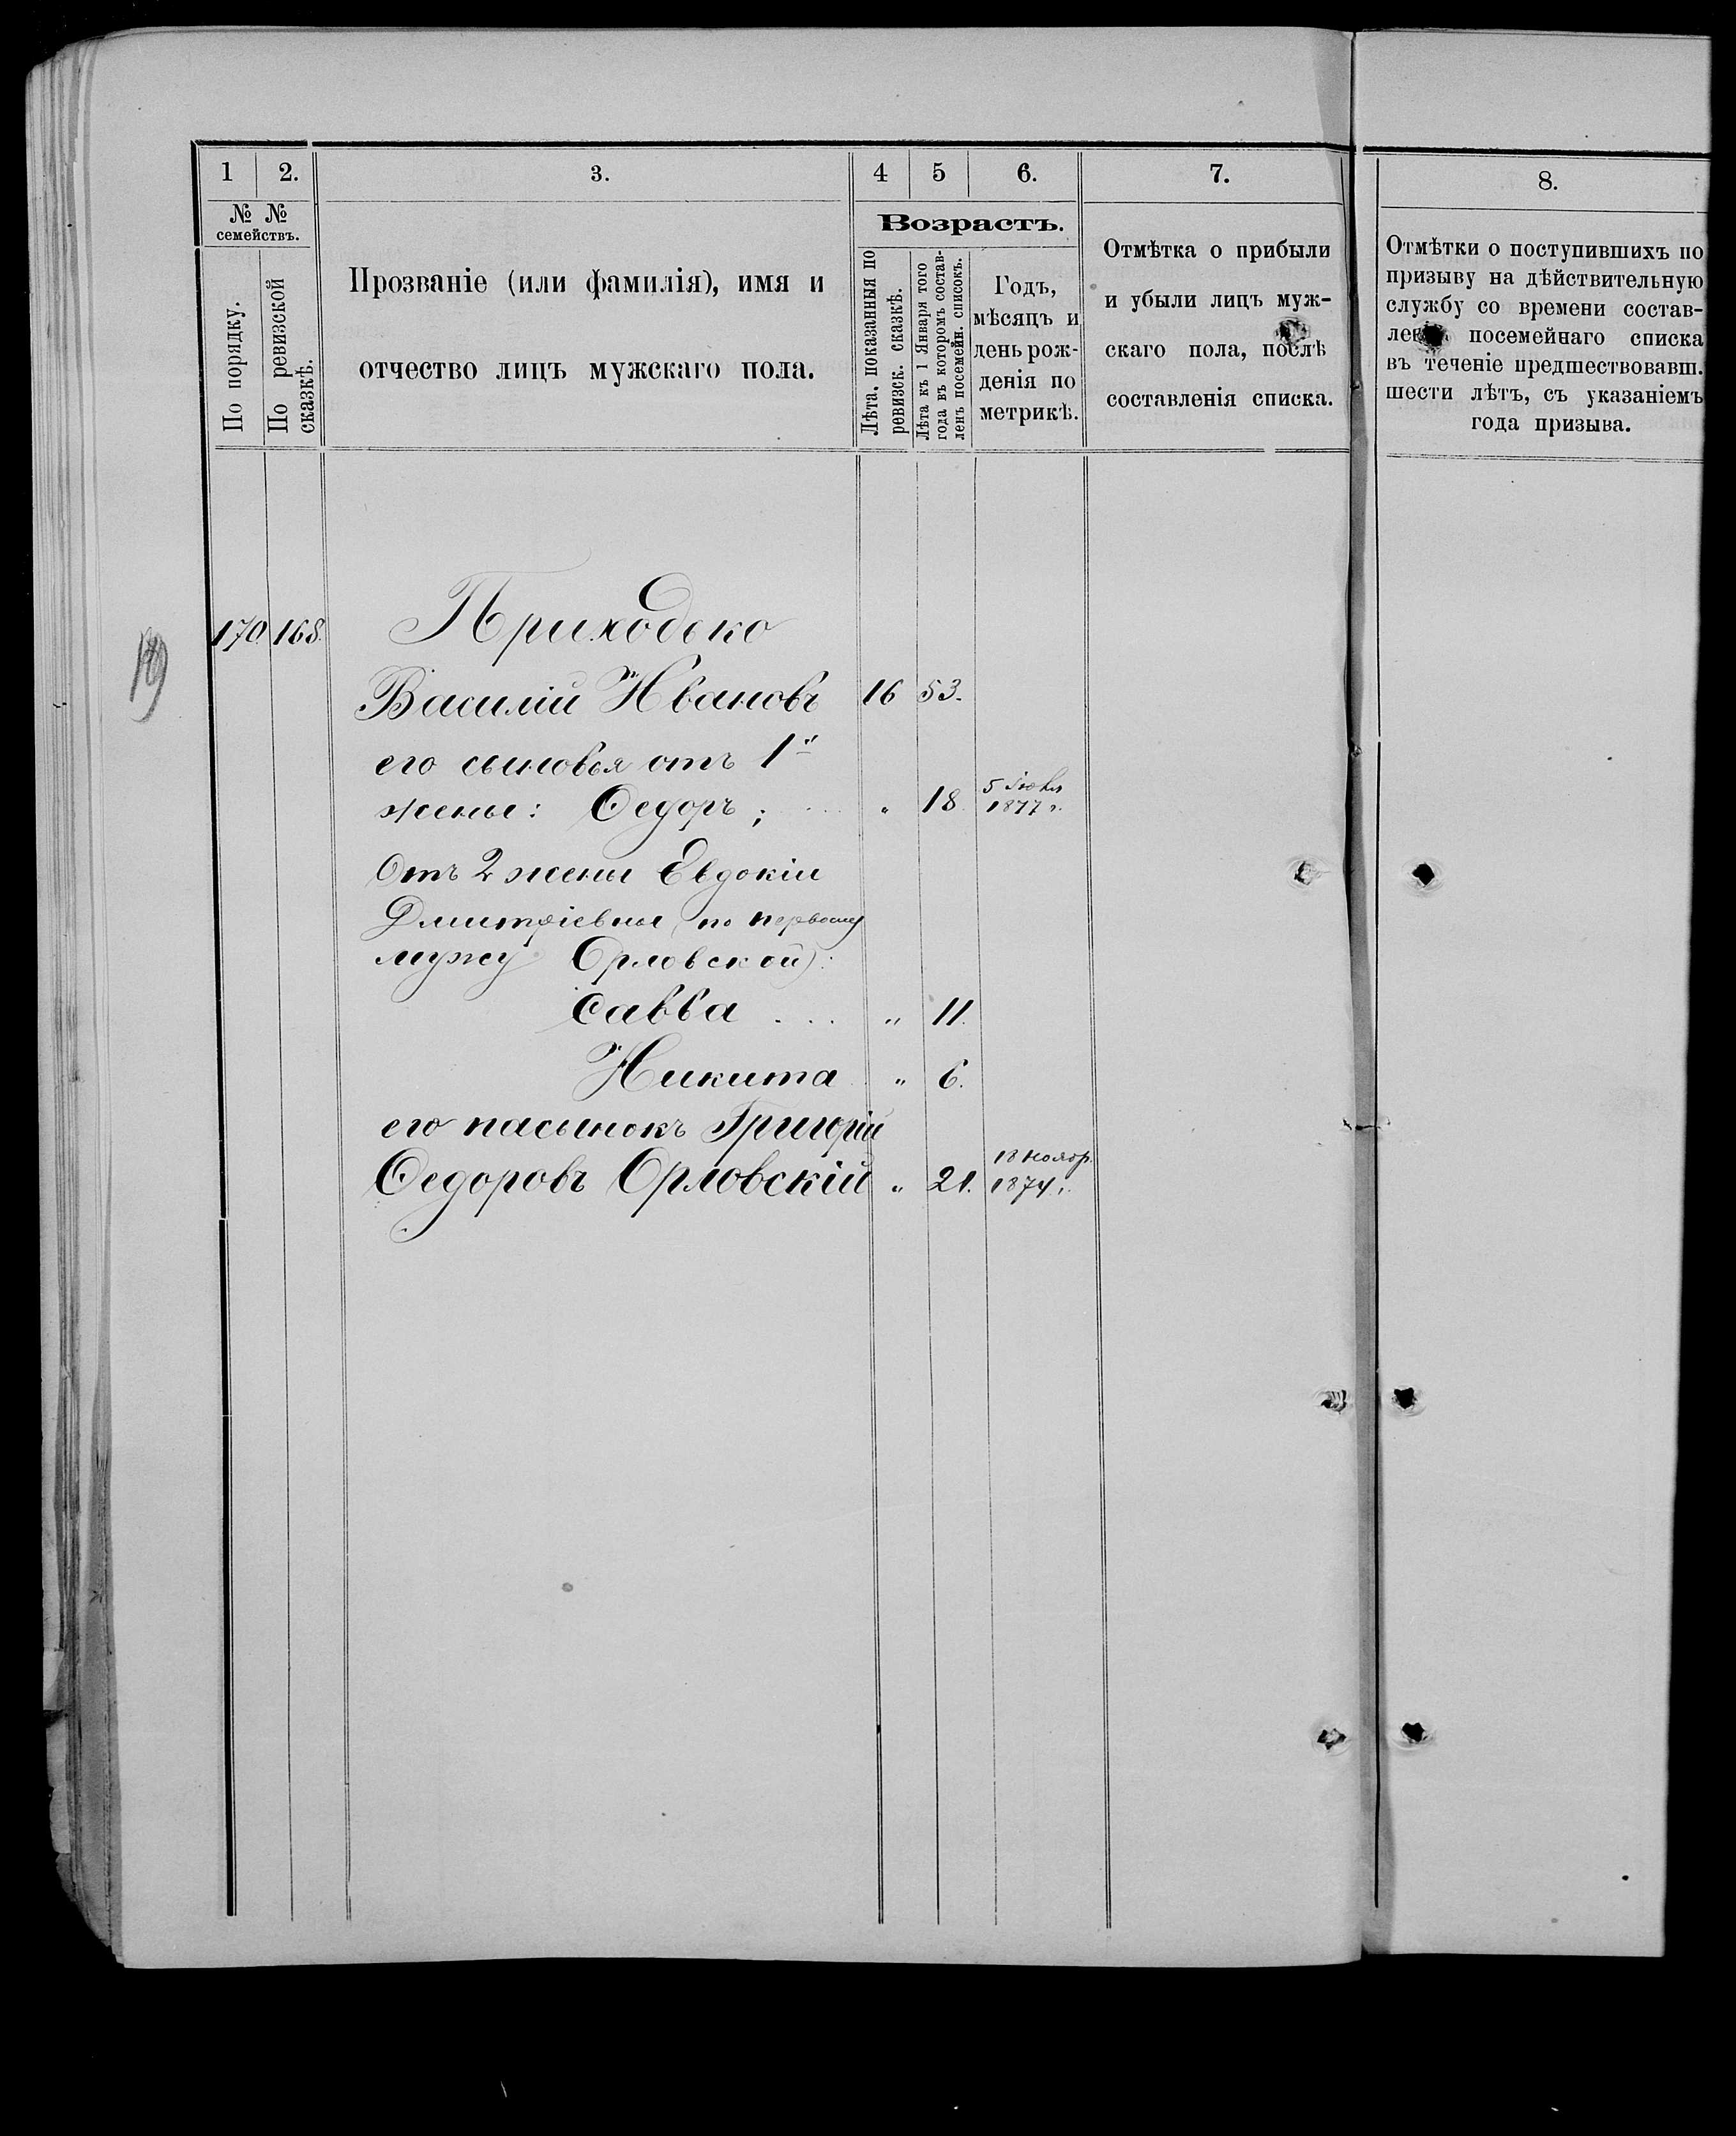 1 2. 3. 4 5 6. 7. 8.
№ № семействъ.
По порядку.
По ревизской сказкѣ.
Прозваніе (или фамилія), имя и
отчество лицъ мужскаго пола.
Возрастъ.
Лѣта, показанныя по
ревизск. сказкѣ.
Лѣта къ 1 Января того
года въ которомъ состав-
ленъ посемейн. списокъ.
Годъ,
мѣсяцъ и
день рож-
денія по
метрикѣ.
Отмѣтка о прибыли
и убыли лицъ муж-
скаго пола, послѣ
составленія списка.
Отмѣтки о поступившихъ по
призыву на дѣйствительную
службу со времени состав-
ленія посемейнаго списка
въ теченіе предшествовавш.
шести лѣтъ, съ указаніемъ
года призыва.
170 168. Приходько
Василій Ивановъ 16 53.
его сыновья отъ 1й
жены: Ѳедоръ; " 18. 5 Іюня 1877 г.
Отъ 2 жены Евдокіи
Дмитріевны (по первому
мужу Орловской):
Савва . . . " 11.
Никита " 6.
его пасынокъ Григорій
Ѳедоровъ Орловскій " 21. 18 Ноябр. 1874 г.